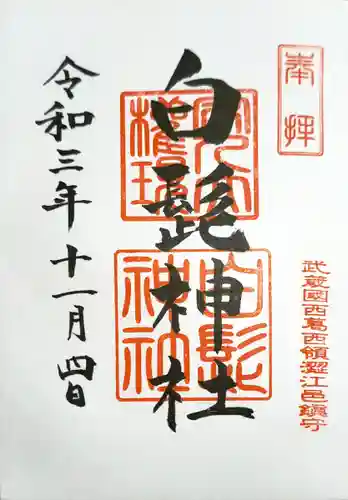 奉拝
武蔵國西葛西領澀江邑鎭守
白髭神社
白髭神社
令和三年十一月四日